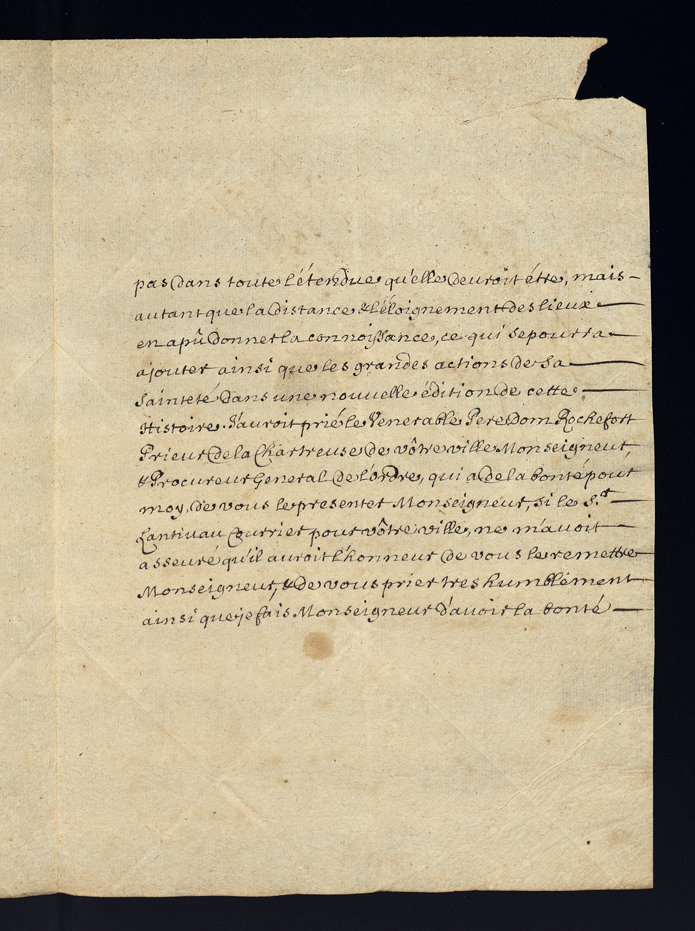 pas dans toute l'étendue qu'elle devroit étre, mais
autant que la distance & l'éloignement des lieux
en a pû donner la connoissance, ce qui se pourra
ajouter ainsi que les grandes actions de Sa
Sainteté dans une nouvelle édition de cette
Histoire. J'aurois prié le Venerable Pere Dom Rochefort
Prieur de la Chartreuse de vôtre ville Monseigneur,
& Procureur General de l'ordre, qui a de la bonté pour
moy, de vous le presenter Monseigneur, si le S.r
Lantivau Courrier pour vôtre ville, ne m'avoit
asseuré qu'il auroit l'honneur de vous le remettre
Monseigneur, & de vous prier tres humblement
ainsi que je fais Monseigneur d'avoir la bonté